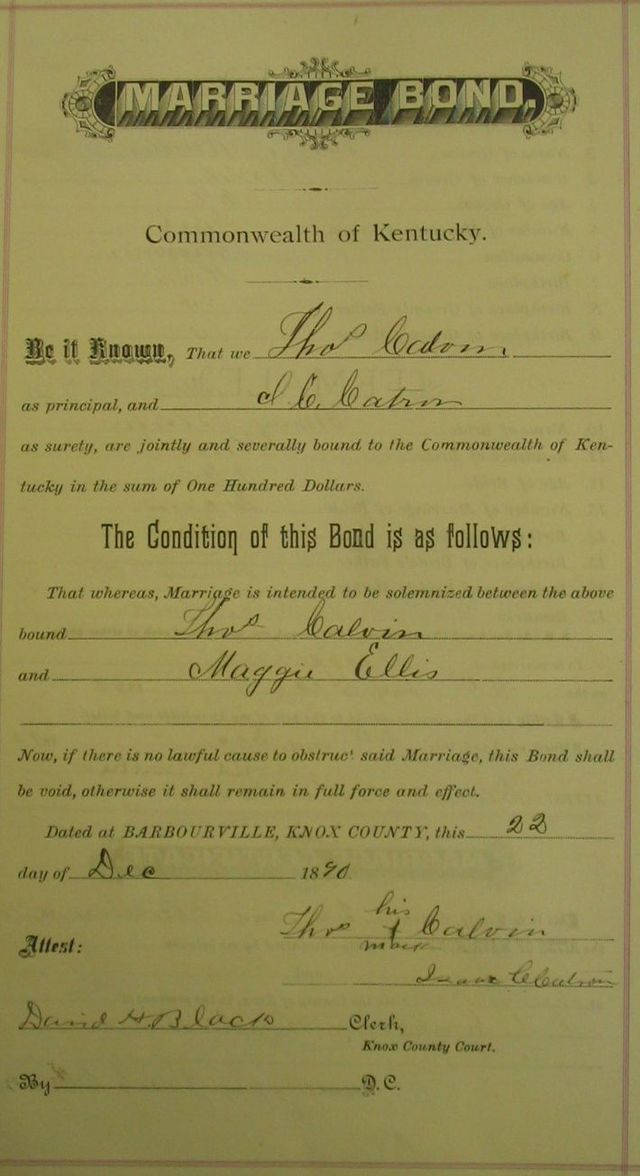 MARRIAGE BOND.
Commonwealth of Kentucky.
Be it Known, That we Thos Calvin
as principal, and I C. Catron
as surety, are jointly and severally bound to the Commonwealth of Ken-
tucky in the sum of One Hundred Dollars.
The Condition of this Bond is as follows:
That whereas, Marriage is intended to be solemnized between the above
bound Thos Calvin
and Maggie Ellis
Now, if there is no lawful cause to obstruct said Marriage, this Bond shall
be void, otherwise it shall remain in full force and effect.
Dated at BARBOURVILLE, KNOX COUNTY, this 22
day of Dec 1890
his
Thos X Calvin
Attest: mark
Isaac C Catron
David H Black Clerk,
Knox County Court.
By D.C.